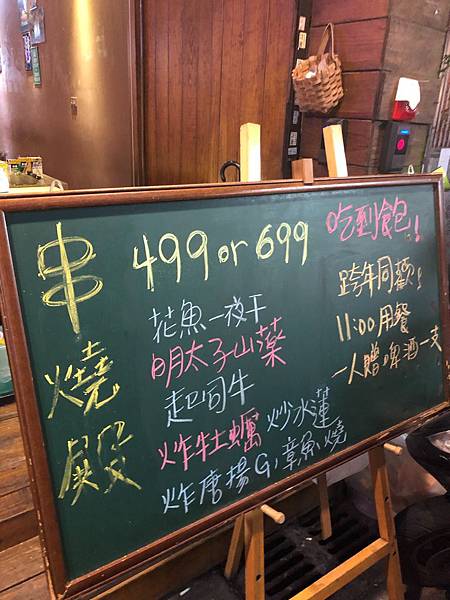 串燒殿
499 or 699
吃到飽!
花魚一夜干
明太子山藥
起司牛
炸牡蠣 炒水蓮
炸唐揚G,章魚燒
跨年同歡!
11:00用餐
一人贈啤酒一支